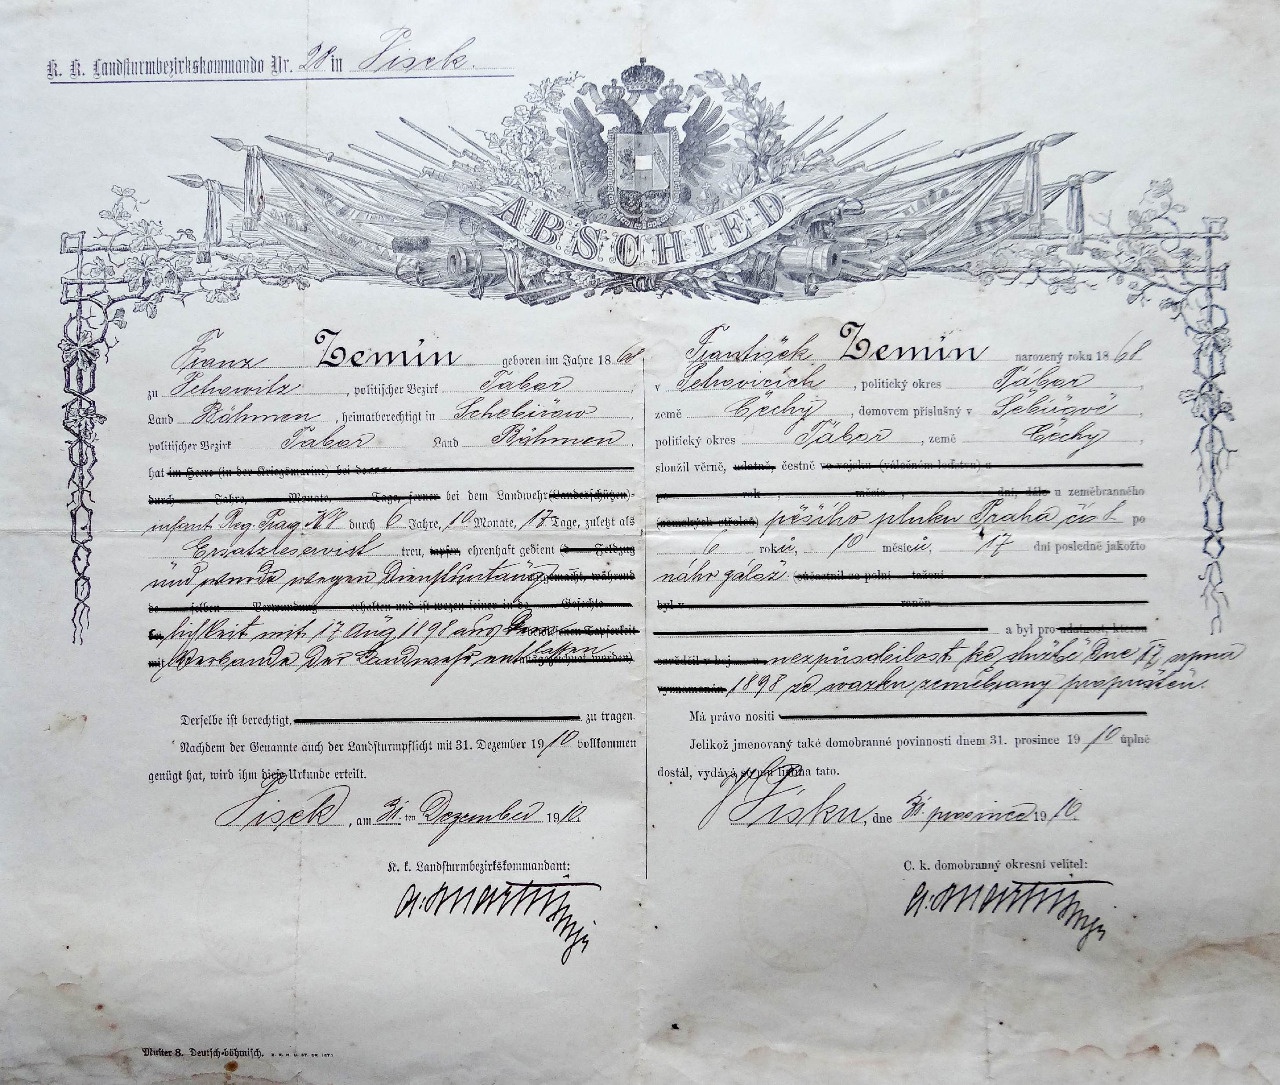 K. K. Landsturmbezirkskommando Nr. 28 in Pisek.
ABSCHIED
Franz Zemin geboren im Jahre 1868
zu Petrowitz, politischer Bezirk Tabor,
Land Böhmen, heimatberechtigt in
politischer Bezirk Tabor Land Böhmen,
hat im Heere (in der Kriegsmarine) bei
durch Jahre, Monate, Tage, ferner bei dem Landwehr(Landesschützen)-
infant. Reg. Prag № 8 durch 6 Jahre, 10 Monate, 17 Tage, zuletzt als
Ersatzreservist treu, tapfer, ehrenhaft gedient Feldzug
und wurde wegen Dienstuntaug gemacht, während
desselben Verwundung erhalten und ist wegen seiner in de Gefechte
lichkeit mit 17 Aug 1898 aus dem Tapferkeit
mit Verbande der Landwehr entlassen
Derselbe ist berechtigt, zu tragen.
Nachdem der Genannte auch der Landsturmpflicht mit 31. Dezember 1910 vollkommen
genügt hat, wird ihm diese Urkunde erteilt.
Pisek, am 31. ten Dezember 1910.
K. k. Landsturmbezirkskommandant:
Muster 8. Deutsch-böhmisch.
František Zemin narozený roku 1868
v Petrovicích, politický okres Tábor,
země Čechy, domovem příslušný v
politický okres Tábor, země Čechy,
sloužil věrně, udatně, čestně ve vojsku (válečném loďstvu) u
po rok, měsíc, dní, dále u zeměbranného
(zemských střelců) pěšího pluku Praha čís 8 po
6 roků, 10 měsíců, 17 dní posledně jakožto
náhr. zálož. účastnil se polní tažení
byl v raněn
a byl pro udatnost, kterou
nezpůsobilost ke službě dne 17 srpna
1898 ze svazku zeměbrany propuštěn.
Má právo nositi
Jelikož jmenovaný také domobranné povinnosti dnem 31. prosince 1910 úplně
dostál, vydává se mu listina tato.
V Písku, dne 31 prosince 1910.
C. k. domobranný okresní velitel: